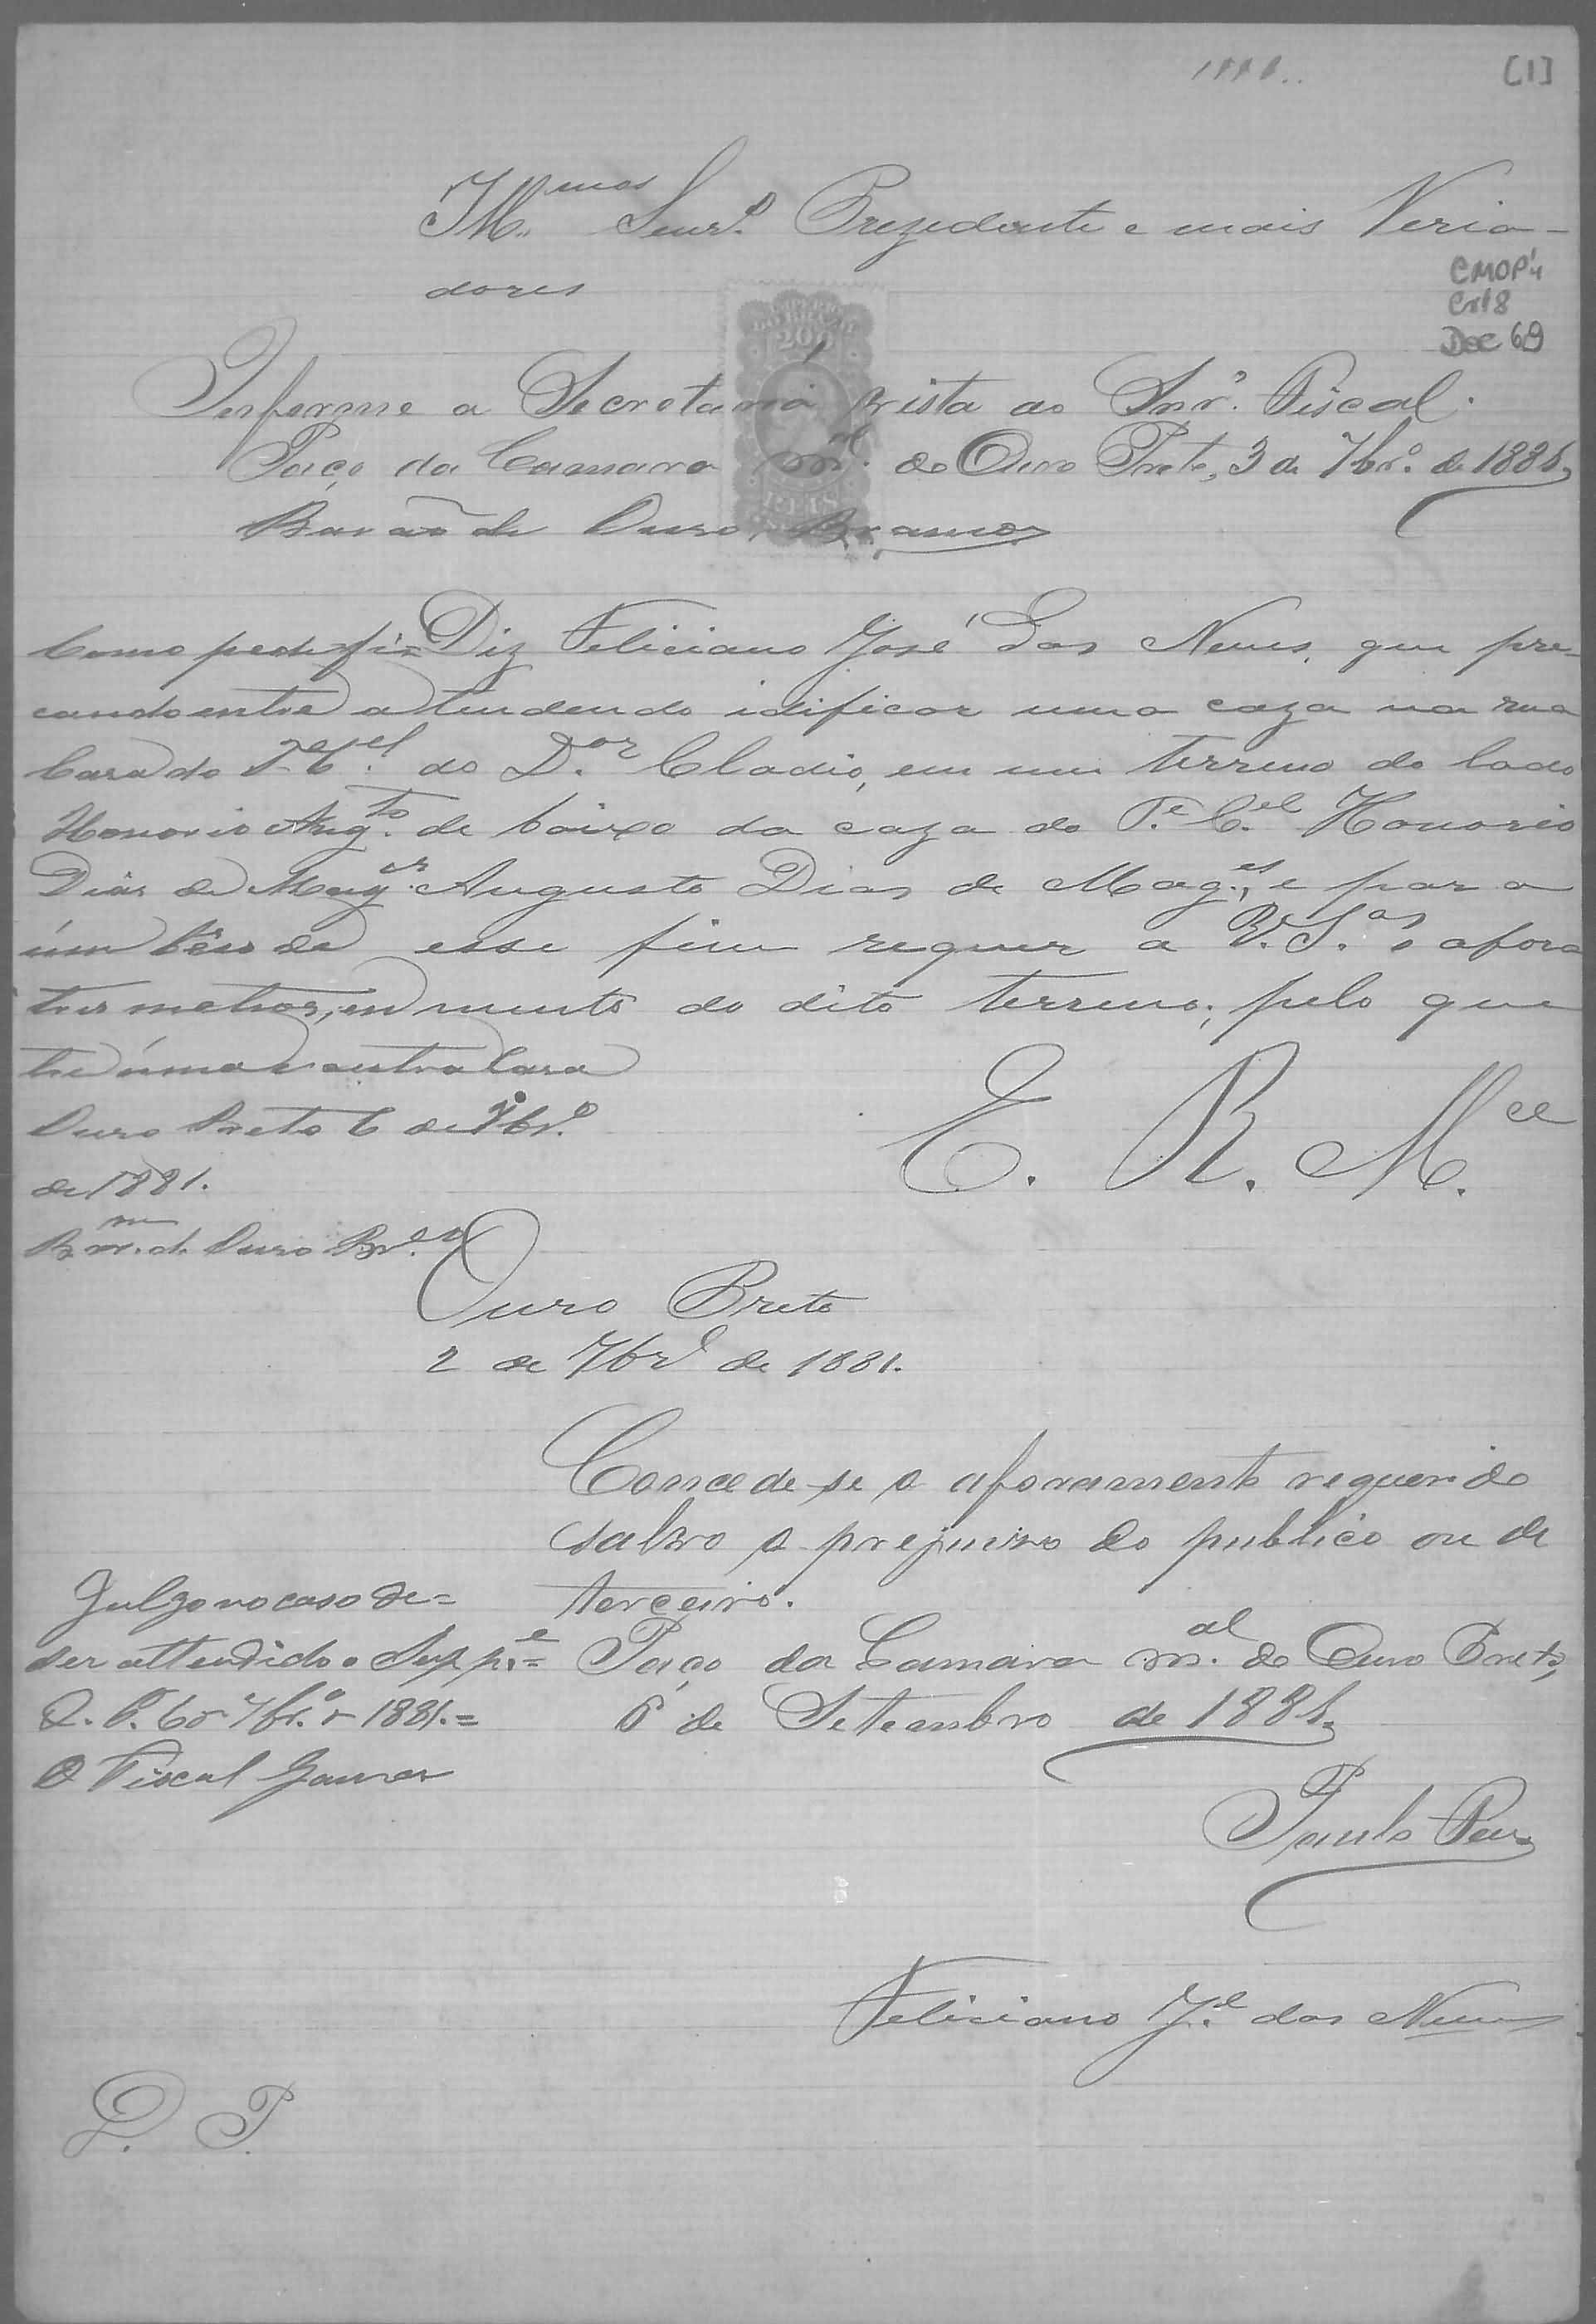 [1]
Illmos Senrs. Prezedente e mais Veria-
dores
CMOP'4
Cx18
Doc 69
IMPERIO
DO BRAZIL
200
REIS
Informe a Secretaria vista ao Snr. Fiscal.
Paço da Camara m.al do Ouro Preto, 3 de 7br.o de 1881,
Barão de Ouro Branco
Diz Feliciano José Dos Neves, que pre-
tendendo idificar uma caza na rua
do D.or Cladio, em um terreno do lado
de baixo da caza do T.e C.el Honorio
Augusto Dias de Mag.es, e para
esse fim requer a V. S.as o afora
mento do dito terreno; pelo que
E. R. M.ce
Como pede fi=
cando entre a
Casa do T.e C.el
Honorio Aug.to
Dias de Mag.es
um bêco de
tres metros, en
tre úma e outra Casa
Ouro Preto 6 de 7br.o
de 1881.
Bam. de Ouro Br.co
Ouro Preto
2 de 7br.o de 1881.
Concede-se o aforamento requerido
salvo o prejuizo do publico ou de
terceiro.
Paço da Camara m.al do Ouro Preto,
6 de Setembro de 1881.
Paulo
Julgo no caso de=
ser attendido o Supp.e=
O. P. 6 7br.o 1881.=
O Fiscal
Feliciano J.e dos Neves
D. P.